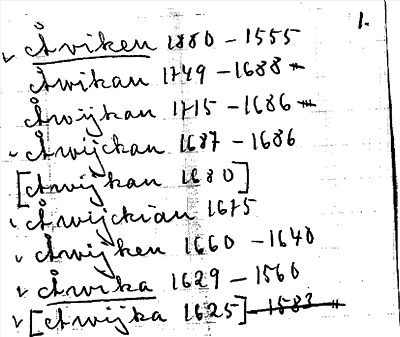 1.
Åviken 1880 - 1555
Åwikan 1749 - 1688
Åwijkan 1715 - 1686
Åwijckan 1687 - 1686
[Åwijkan 1680]
Åwijckian 1675
Åwijken 1660 - 1640
Åwika 1629 - 1560
[Åwijka 1625] - 1583